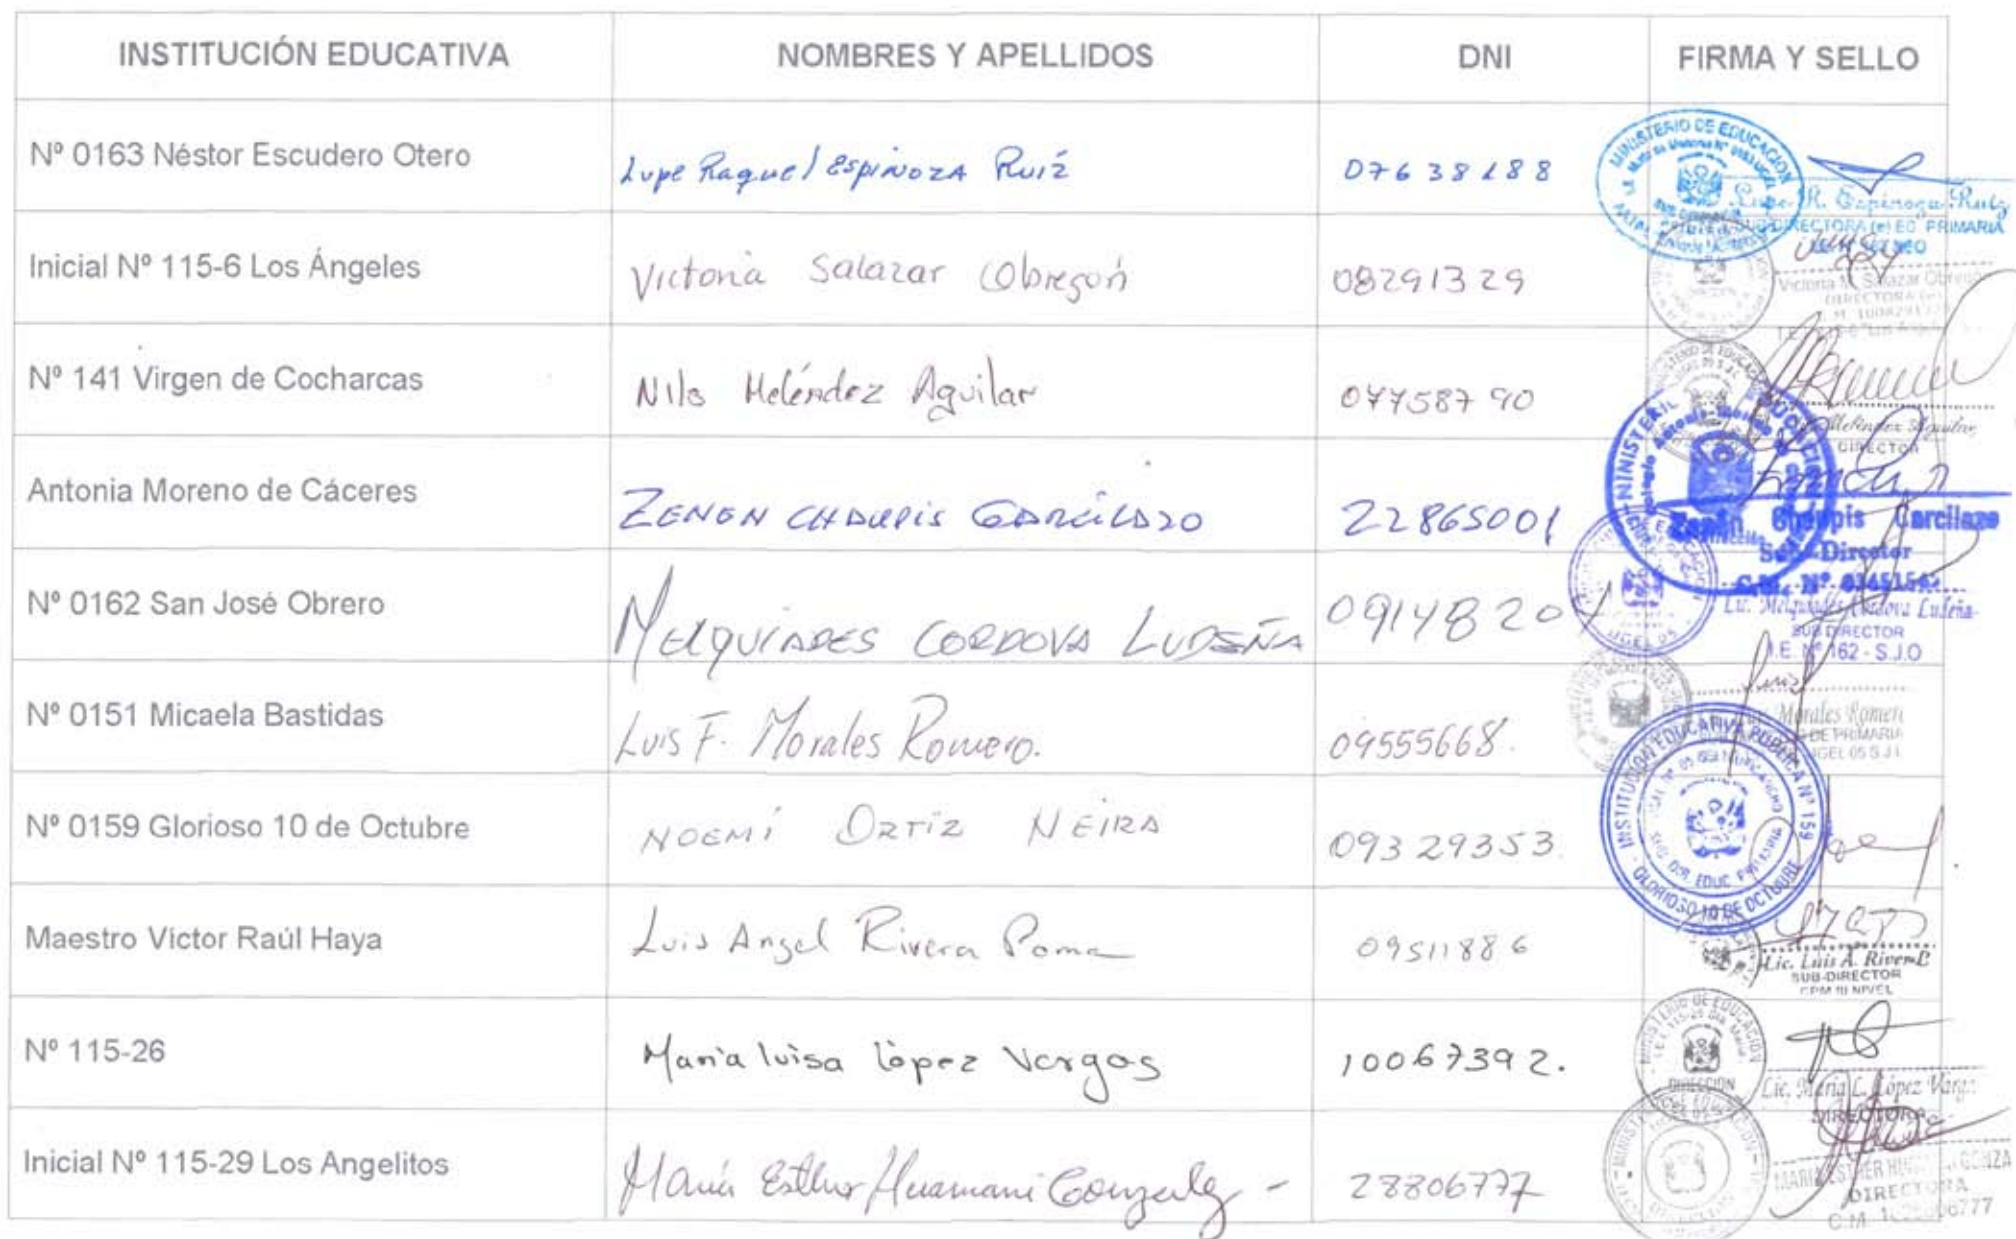 INSTITUCIÓN EDUCATIVA NOMBRES Y APELLIDOS DNI FIRMA Y SELLO
Nº 0163 Néstor Escudero Otero Lupe Raquel Espinoza Ruiz 07638188
MINISTERIO DE EDUCACION
Lupe R. Espinoza Ruiz
SUB-DIRECTORA (e) ED. PRIMARIA
Inicial Nº 115-6 Los Ángeles Victoria Salazar Obregón 08291329
Victoria M. Salazar Obregón
DIRECTORA (e)
Nº 141 Virgen de Cocharcas Nilo Meléndez Aguilar 07758790
Meléndez Aguilar
DIRECTOR
Antonia Moreno de Cáceres ZENEN CHAUPIS GARCILAZO 22865001
Zenón Chaupis Garcilazo
Sub-Director
Nº 0162 San José Obrero MELQUIADES CORDOVA LUDEÑA 09148204
Lic. Melquiades Cordova Ludeña
SUB DIRECTOR
I.E. Nº 162 - S.J.O
UGEL 05
Nº 0151 Micaela Bastidas Luis F. Morales Romero. 09555668.
Morales Romero
DE PRIMARIA
UGEL 05 S.J.L
Nº 0159 Glorioso 10 de Octubre NOEMí ORTíZ NEIRA 09329353.
INSTITUCION EDUCATIVA PUBLICA Nº 159
GLORIOSO 10 DE OCTUBRE
Maestro Víctor Raúl Haya Luis Angel Rivera Poma 09511886
Lic. Luis A. Rivera P.
SUB-DIRECTOR
CPM III NIVEL
Nº 115-26 Maria luisa lòpez Vargas 10067392.
MINISTERIO DE EDUCACION
DIRECCION
Lic. María L. López Vargas
DIRECTORA
Inicial Nº 115-29 Los Angelitos María Esther Huamani Gonzales - 28806777
MARIA ESTHER HUAMANI GONZA
DIRECTORA